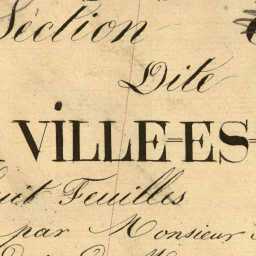 Section
Dite
VILLE-ES-
Feuilles
par Monsieur